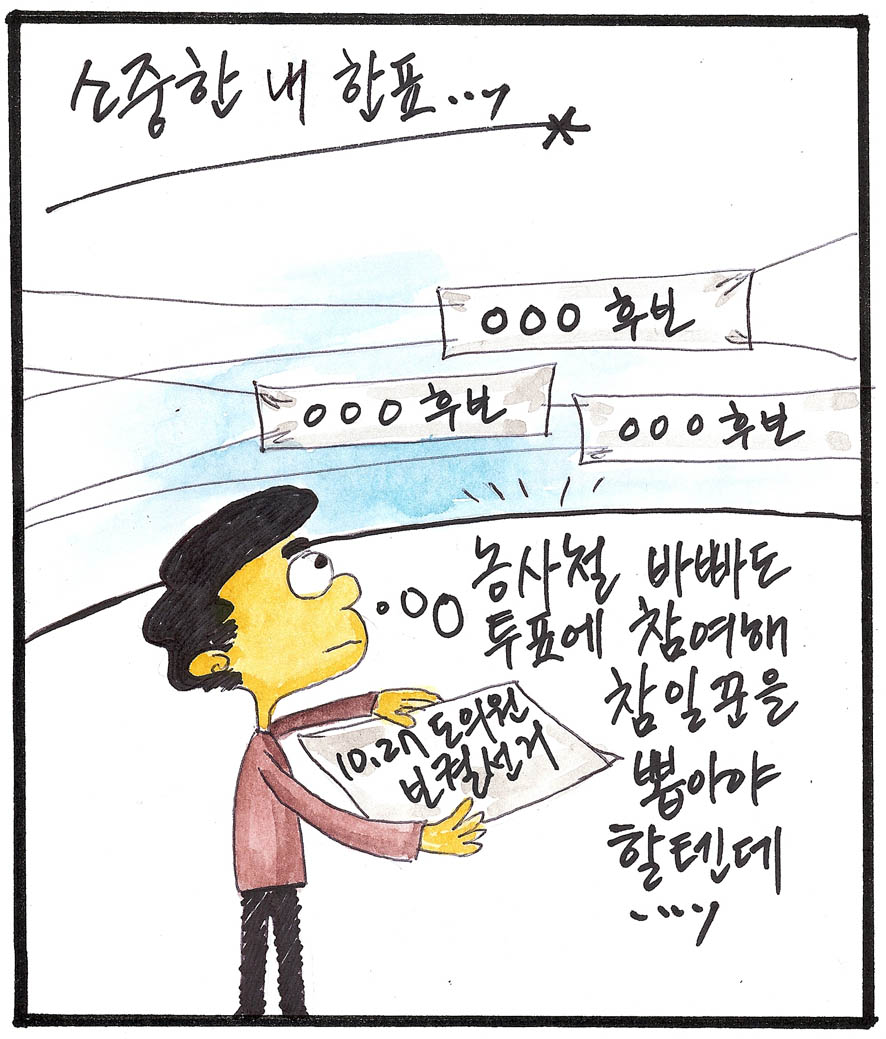 소중한 내 한표...,
OOO 후보
OOO 후보
OOO 후보
농사철 바빠도
투표에 참여해
참일꾼을
뽑아야
할텐데
....,
10.27 도의원
보궐선거